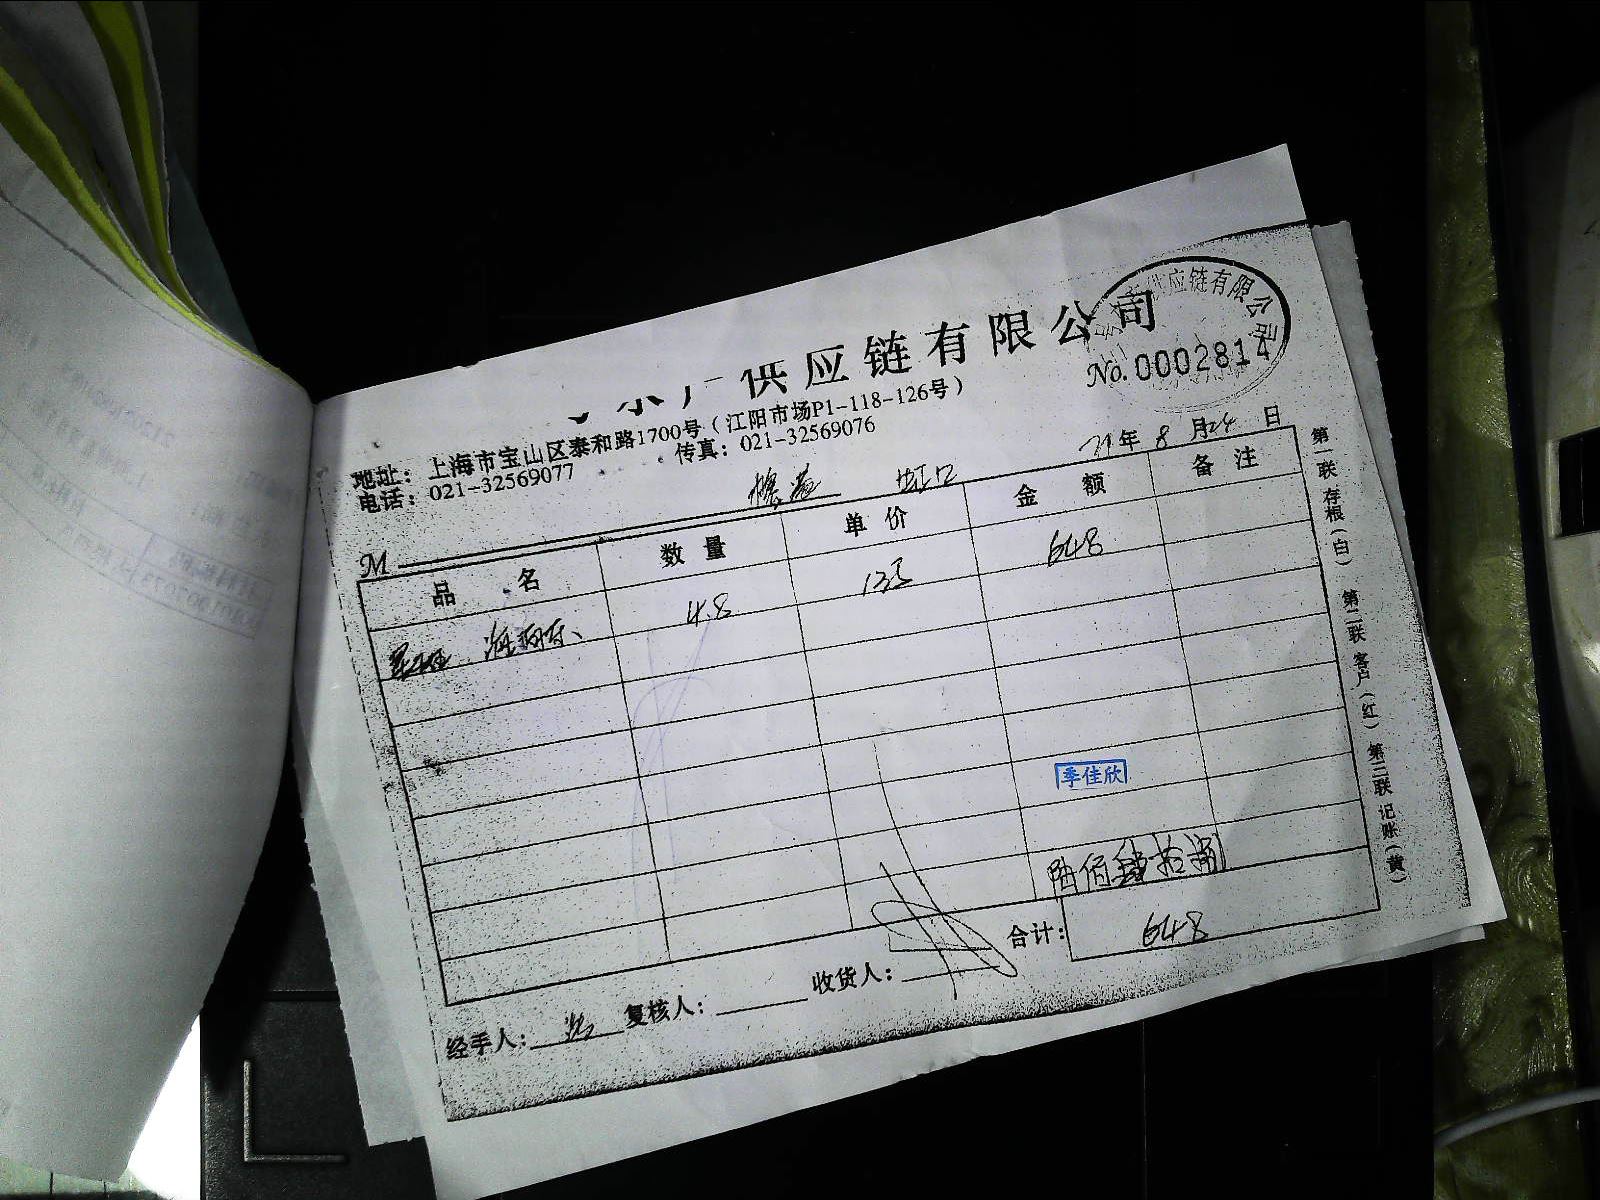 供应链有限公司
供应链有限公司
No. 0002814
地址：上海市宝山区泰和路1700号（江阳市场P1-118-126号）
电话：021-32569077 传真：021-32569076
21年 8 月24 日
M 虹口
品名 数量 单价 金额 备注
4.8 135 648
季佳欣
陆佰肆拾捌
合计： 648
经手人： 复核人： 收货人：
第一联 存根（白） 第二联 客户（红） 第三联 记账（黄）